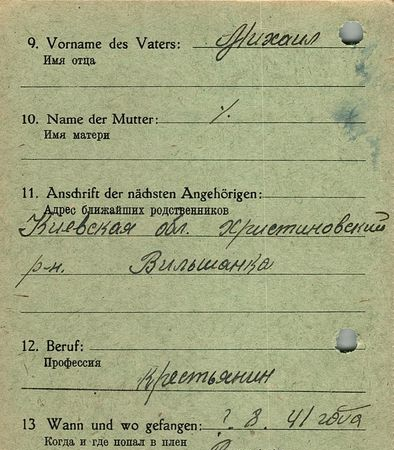 9. Vorname des Vaters: Михаил
Имя отца
10. Name der Mutter: ٪
Имя матери
11. Anschrift der nächsten Angehörigen:
Адрес ближайших родственников
Киевская обл. Христиновский
р-н. Вильшанка
12. Beruf:
Профессия
Крестьянин
13 Wann und wo gefangen: ?. 8. 41 года
Когда и где попал в плен